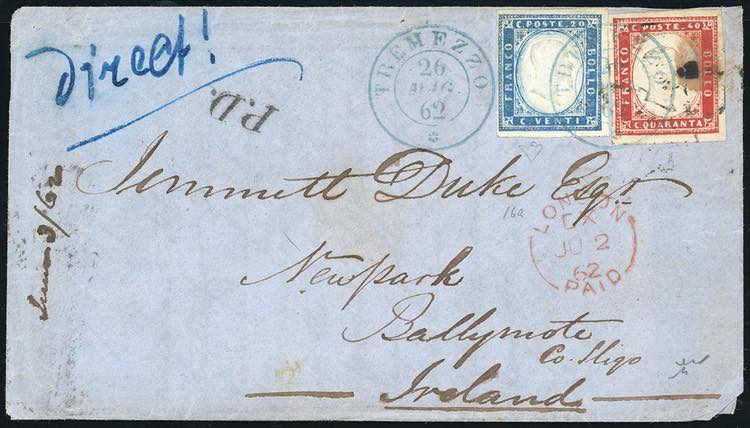 Direct!
P.D.
TREMEZZO
26
MAG
62
C. POSTE. 20
FRANCO
BOLLO
C. VENTI
C. POSTE. 40
FRANCO
BOLLO
C. QUARANTA
Jemmett Duke Esqr.
16a
LONDON
JU 2
62
PAID
Newpark
Ballymote
Co. Sligo
Ireland
3/62